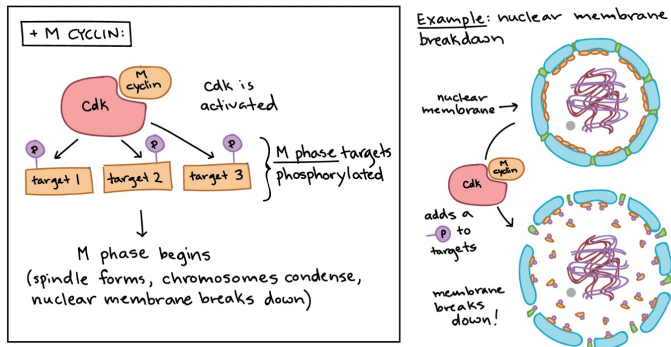 + M CYCLIN:
M
cyclin
Cdk
Cdk is
activated
P
P
P
target 1
target 2
target 3
M phase targets
phosphorylated
M phase begins
(spindle forms, chromosomes condense,
nuclear membrane breaks down)
Example: nuclear membrane
breakdown
nuclear
membrane
M
cyclin
Cdk
adds a
P to
targets
membrane
breaks
down!